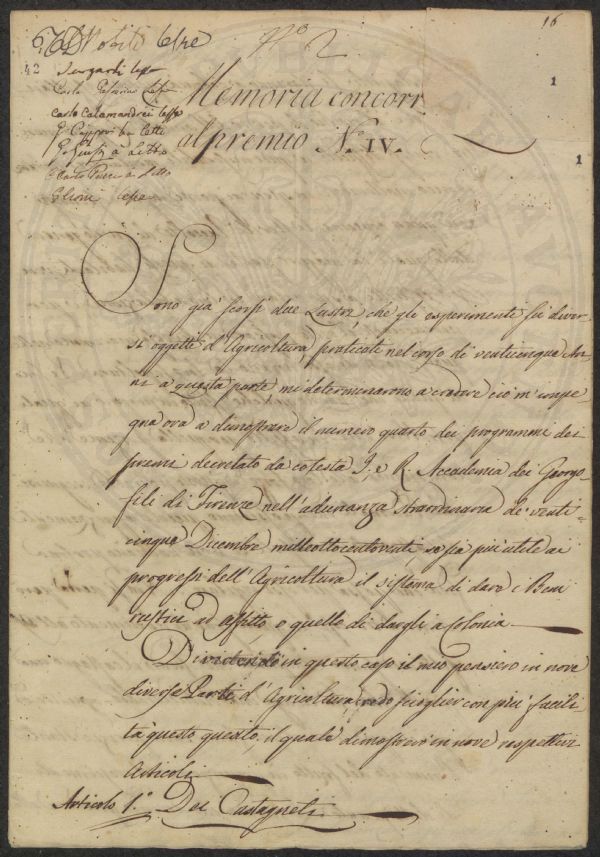 N.º 2
16
42
1
Carlo Calamandrei lesse
Memoria concorr
al premio N.º IV.
1
Sono già scorsi due Lustri, che gli esperimenti su diver-
si oggetti d'Agricoltura praticati nel corso di venticinque An-
ni a questa parte, mi determinarono a credere ciò m'impe-
gna ora a dimostrare il numero quarto dei programmi dei
premi decretato da cotesta I. e R. Accademia dei Georgo-
fili di Firenze nell'adunanza straordinaria de' venti-
cinque Dicembre milleottocentoventi, se sia più utile ai
progressi dell'Agricoltura il sistema di dare i Beni
rustici ad affitto o quello di dargli a Colonia.
Dividendo in questo caso il mio pensiero in nove
diverse Parti d'Agricoltura, credo scioglier con più facili-
tà questo quesito, il quale dimostrerò in nove respettivi
Articoli
Articolo 1.º Dei Castagneti.